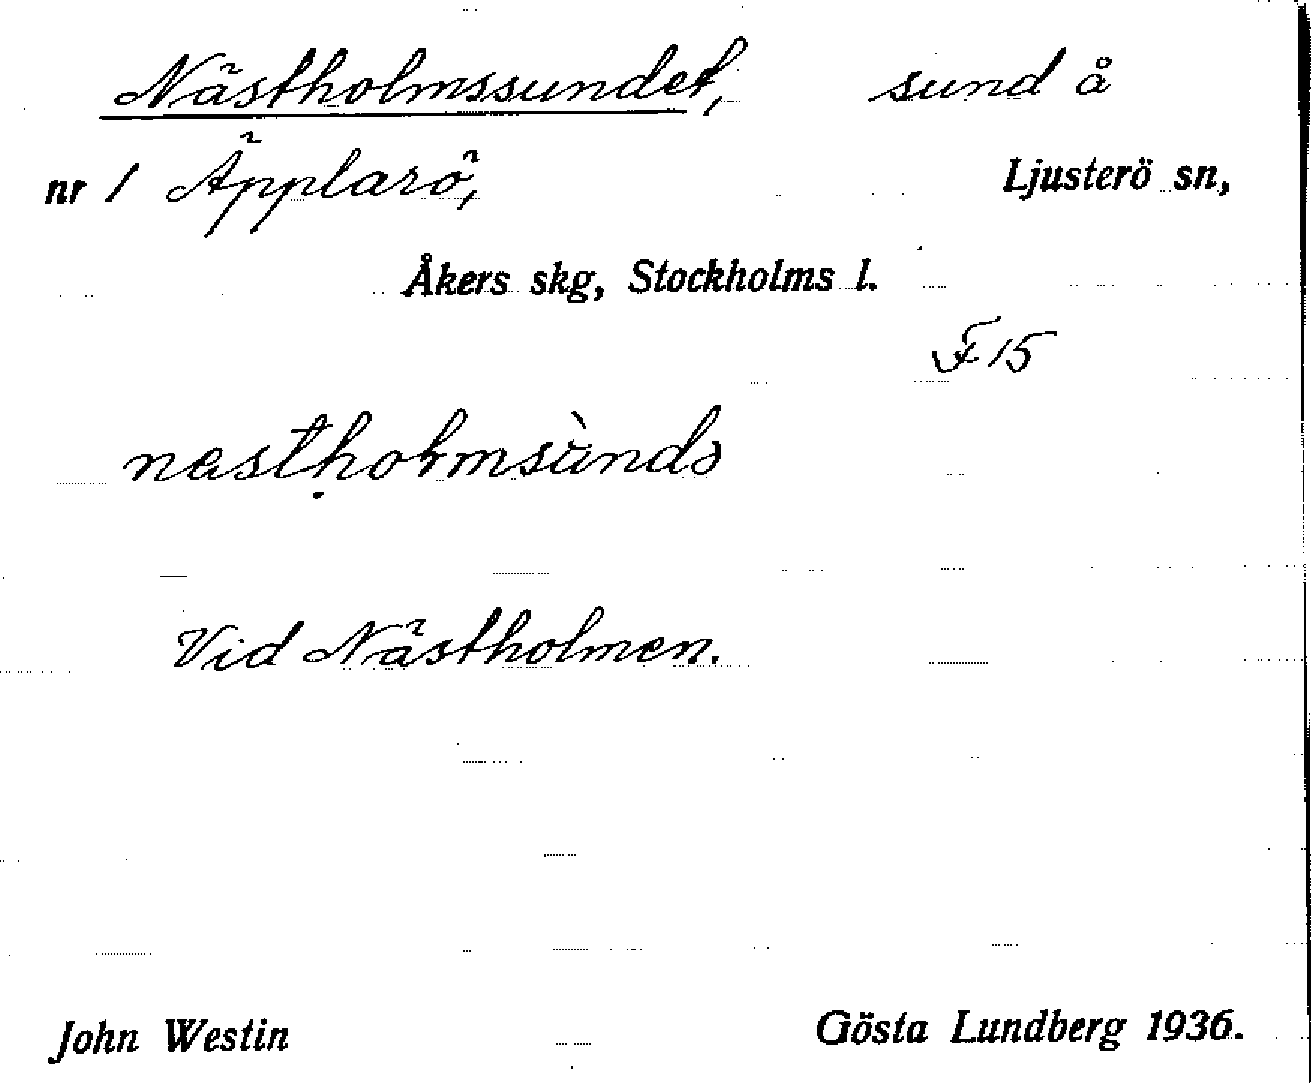 Nästholmssundet, sund å
nr 1 Äpplarö, Ljusterö sn,
Åkers skg, Stockholms l.
F 15
Vid Nästholmen.
John Westin Gösta Lundberg 1936.